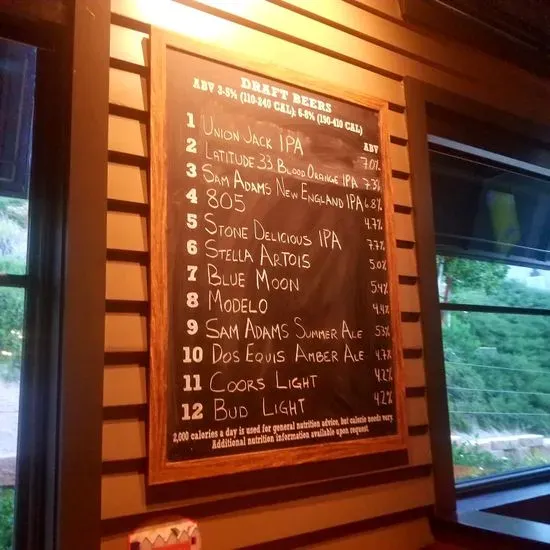 DRAFT BEERS
ABV 3-5% (110-240 CAL); 6-8% (190-410 CAL)
ABV
1 UNION JACK IPA 7.0%
2 LATITUDE 33 BLOOD ORANGE IPA 7.3%
3 SAM ADAMS NEW ENGLAND IPA 6.8%
4 805 4.7%
5 STONE DELICIOUS IPA 7.7%
6 STELLA ARTOIS 5.0%
7 BLUE MOON 5.4%
8 MODELO 4.4%
9 SAM ADAMS SUMMER ALE 5.3%
10 DOS EQUIS AMBER ALE 4.7%
11 COORS LIGHT 4.2%
12 BUD LIGHT 4.2%
2,000 calories a day is used for general nutrition advice, but calorie needs vary.
Additional nutrition information available upon request.